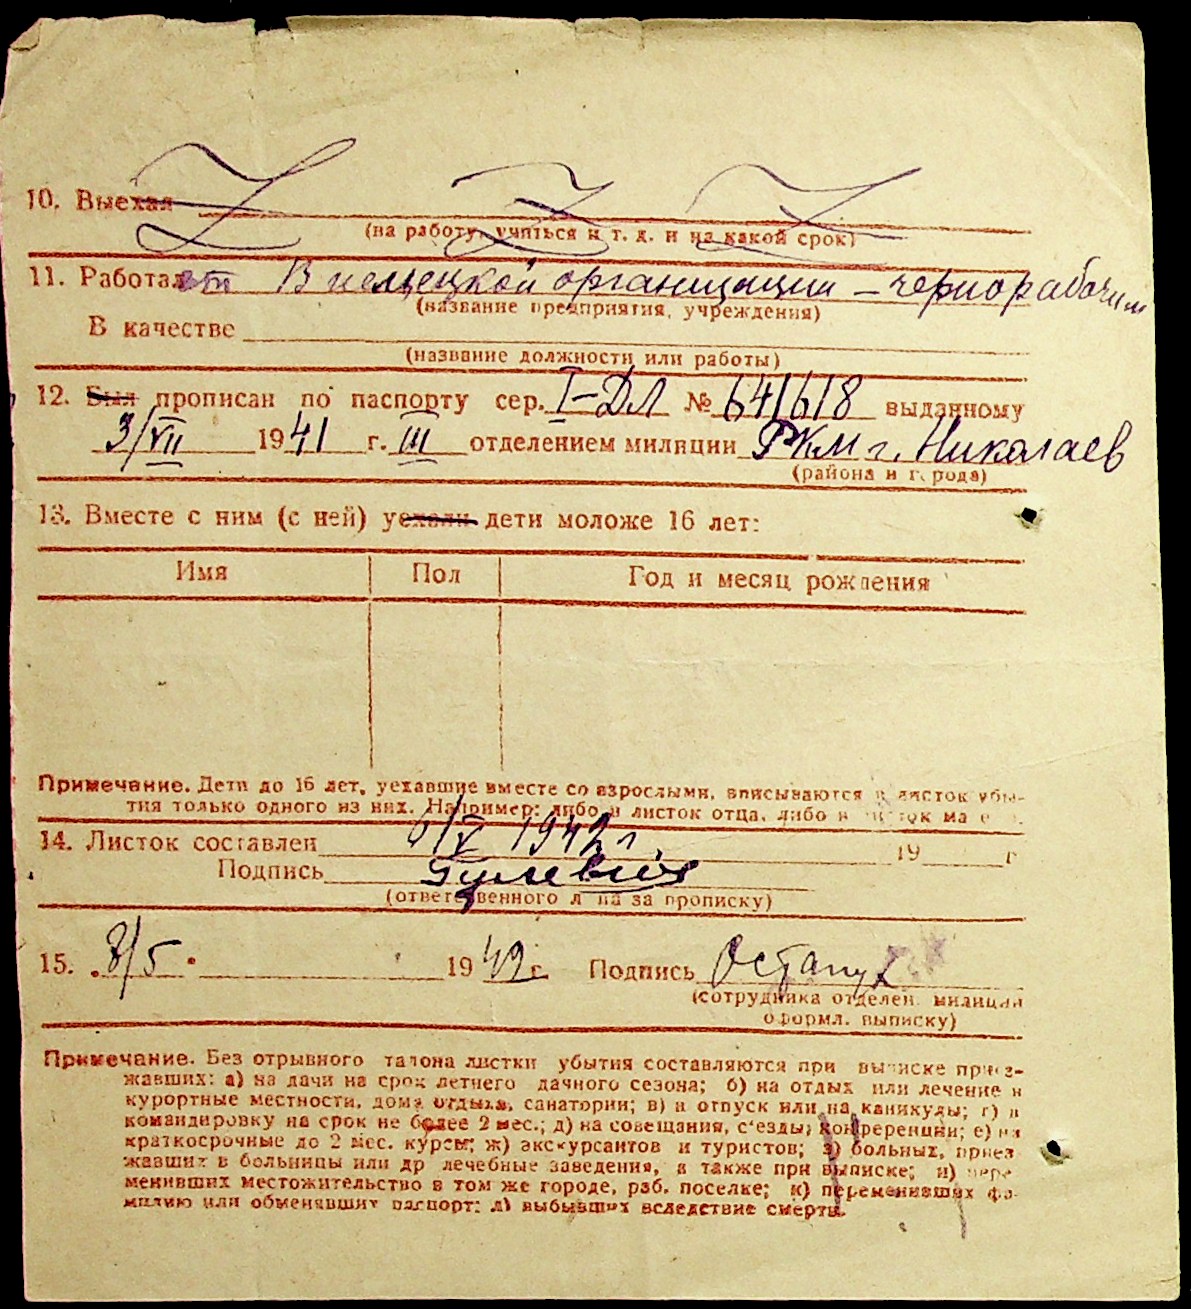 10. Выехал
(на работу, учиться и т. д. и на какой срок)
11. Работает В немецкой организации – чернорабочим
(название предприятия, учреждения)
В качестве
(название должности или работы)
12. Был прописан по паспорту сер. I-ДЛ № 641618 выданному
3/VII 1941 г. III отделением милиции РКМ г. Николаев
(района и города)
13. Вместе с ним (с ней) уехали дети моложе 16 лет:
Имя Пол Год и месяц рождения
Примечание. Дети до 16 лет, уехавшие вместе со взрослыми, вписываются в листок убы-
тия только одного из них. Например: либо в листок отца, либо в листок ма
14. Листок составлен 6/V 1942 г. 19 г
Подпись
(ответственного лица за прописку)
15. 8/5 1942 г. Подпись Остапу
(сотрудника отделен. милиции
оформл. выписку)
Примечание. Без отрывного талона листки убытия составляются при выписке приез-
жавших: а) на дачи на срок летнего дачного сезона; б) на отдых или лечение в
курортные местности, дома отдыха, санатории; в) в отпуск или на каникулы; г) в
командировку на срок не более 2 мес.; д) на совещания, с'езды, конференции; е) на
краткосрочные до 2 мес. курсы; ж) экскурсантов и туристов; з) больных, приез
жавших в больницы или др лечебные заведения, а также при выписке; и) пере-
менивших местожительство в том же городе, раб. поселке; к) переменивших фа-
милию или обменявших паспорт; л) выбывших вследствие смерти.